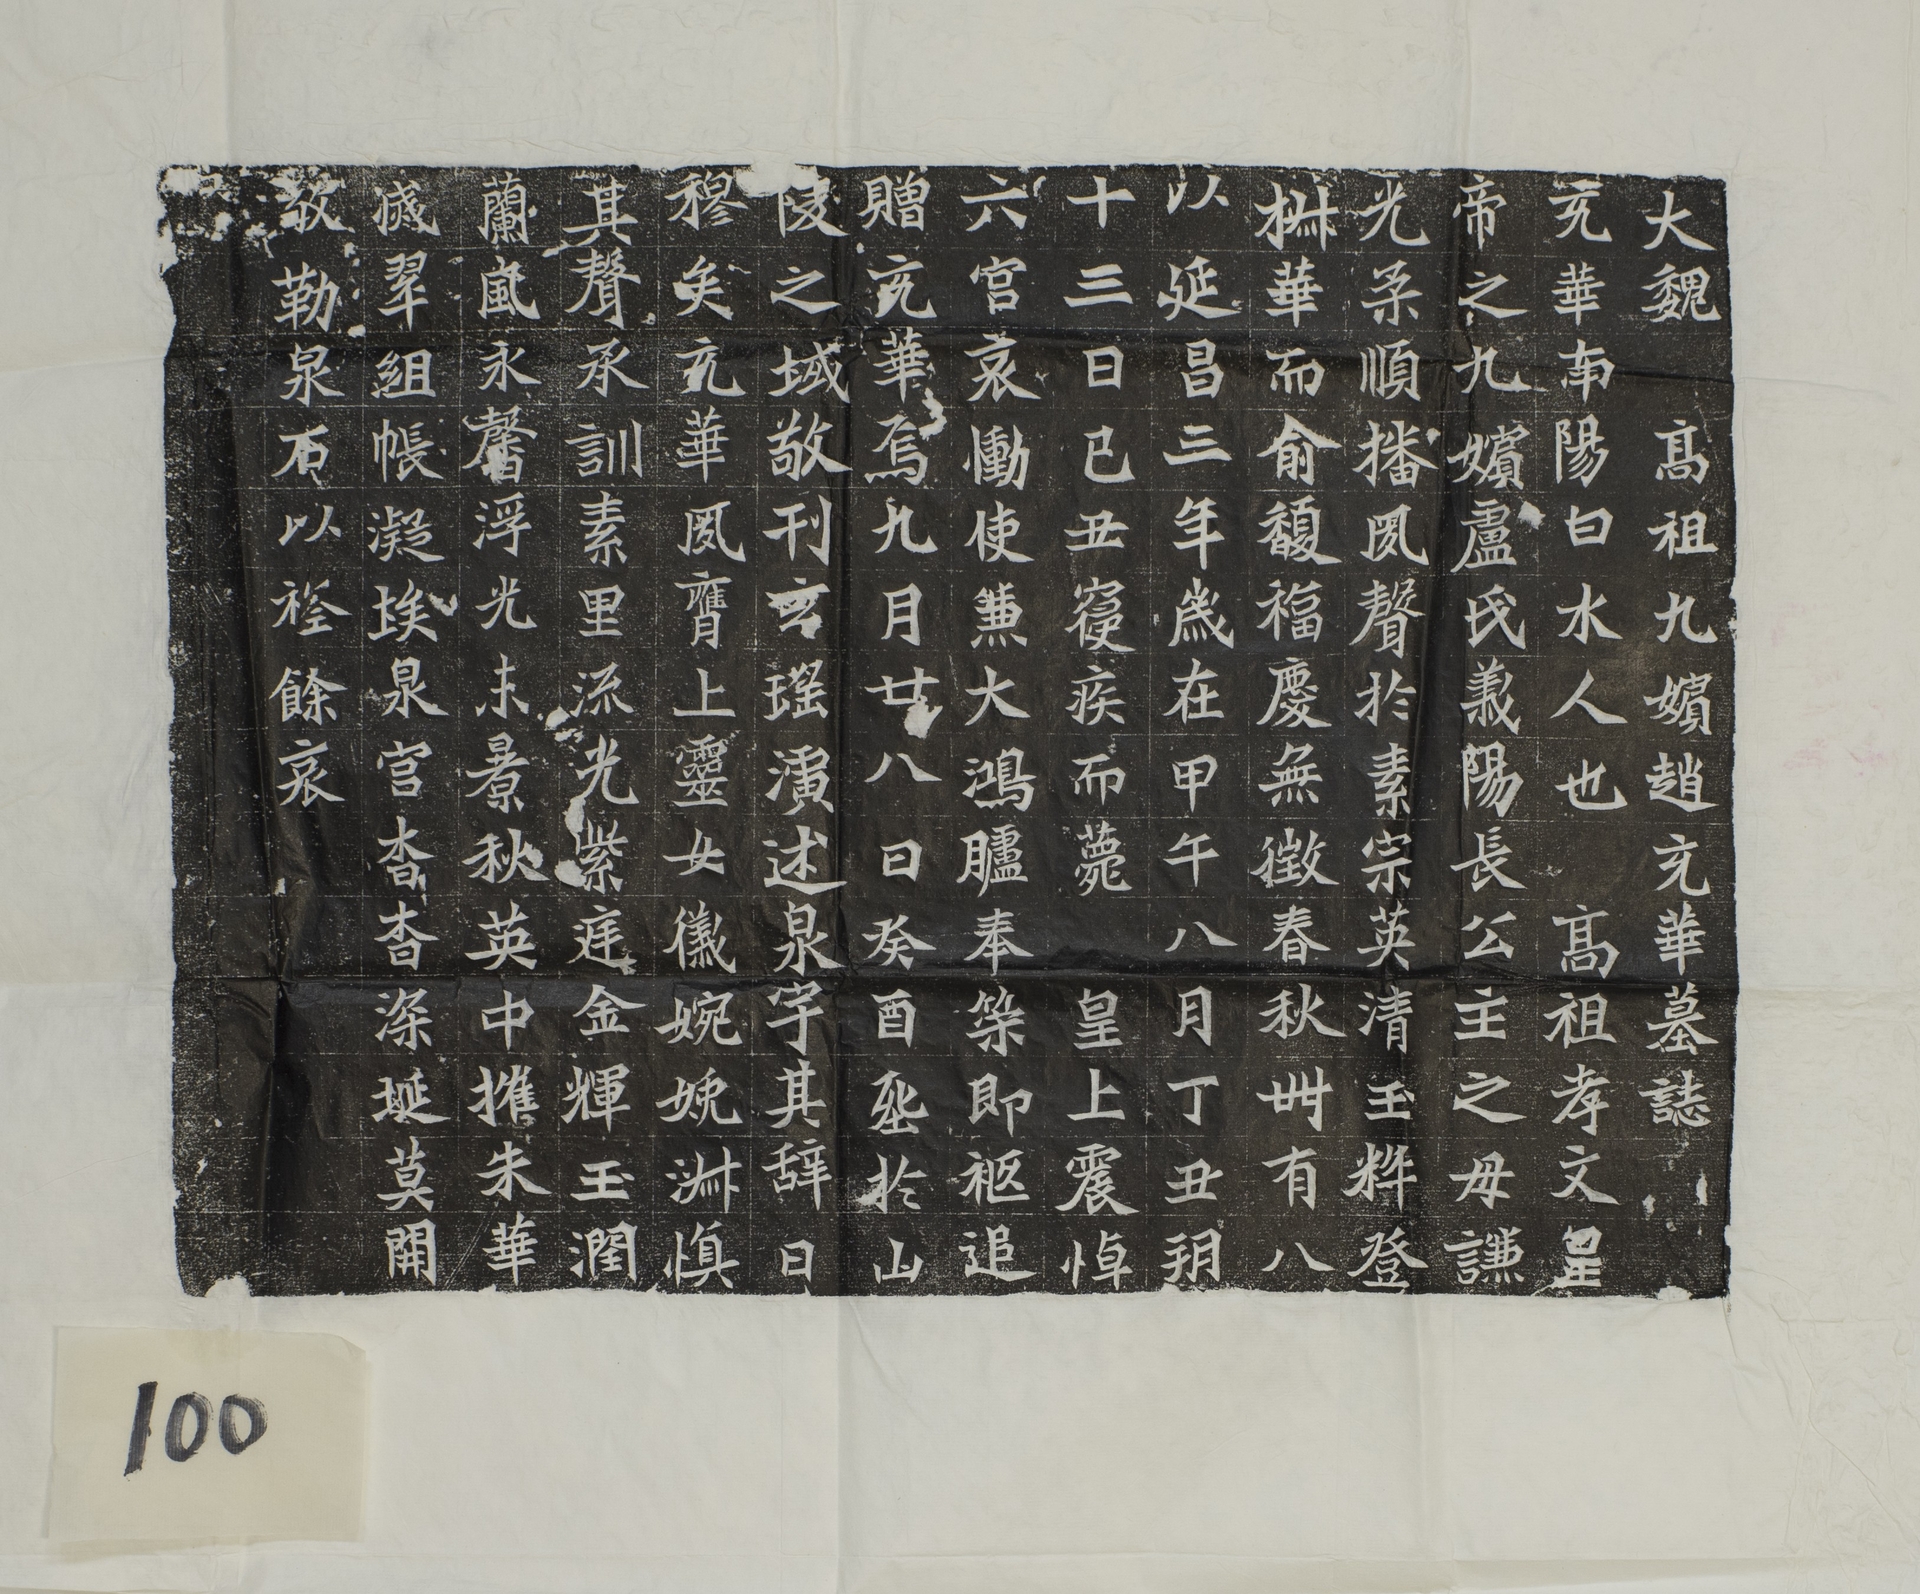 大魏 高祖九嬪趙充華墓誌
充華南陽白水人也 高祖孝文皇
帝之九嬪盧氏義陽長公主之母謙
光柔順播風聲於素宗英清玉粹登
椒華而俞馥福慶無徵春秋卌有八
以延昌三年歲在甲午八月丁丑朔
十三日己丑寢疾而薨 皇上震悼
六宮哀慟使兼大鴻臚奉策即柩追
贈充華焉九月廿八日癸酉葬於山
陵之域敬刊玄瑤瀆述泉宇其辞曰
穆矣充華風膺上靈女徽婉娩淋慎
其聲承訓素里流光紫庭金輝玉潤
蘭嵐永馨浮光未景秋英中摧朱華
翠組帳凝埃泉宮杳杳深埏莫開
敬勒泉石以餘哀
100